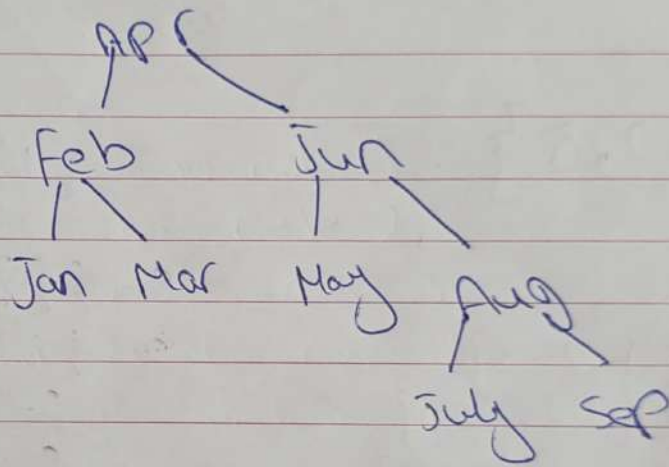 Apr
Feb Jun
Jan Mar May Aug
July Sep